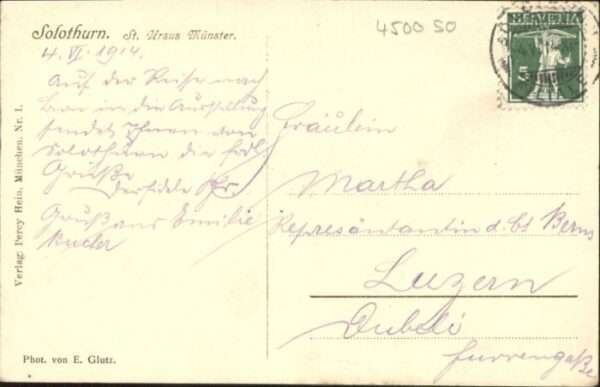 Solothurn. St. Ursus Münster.
4500 SO
HELVETIA
5
4. VI. 1914.
Auf der Reise nach
Bern in die Ausstellung
sendet Ihnen von
Solothurn die frdl.
Grüße
Gruß aus Emilie
Fräulein
Martha
Represäntantin d. bt Berns
Luzern
Dubeli
furrengaße
Verlag: Percy Hein, München. Nr. 1.
Phot. von E. Glutz.